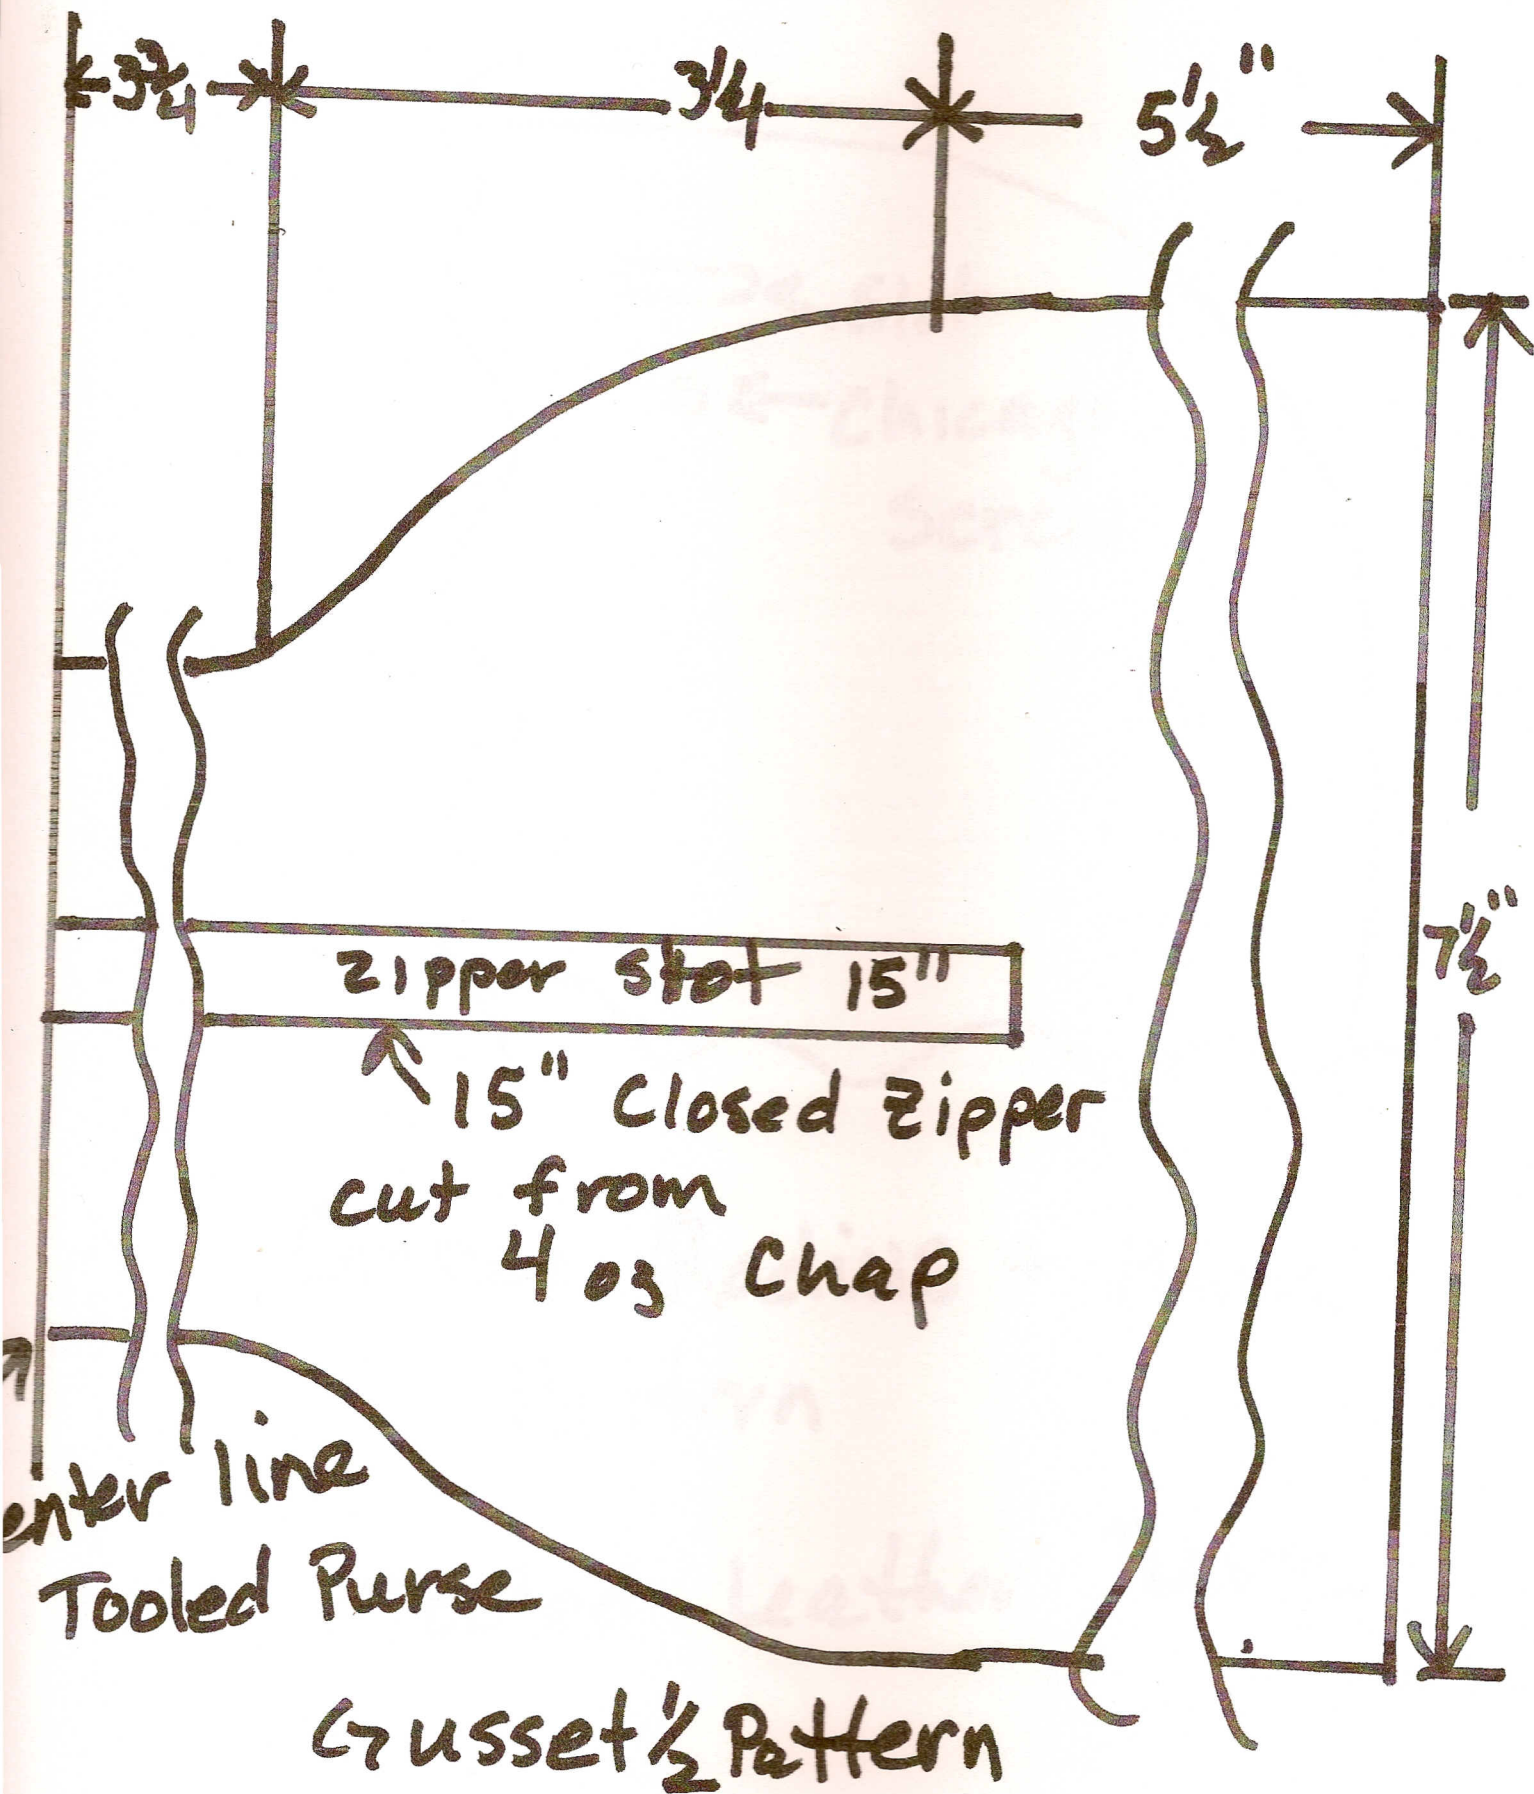 3 3/4 3 1/4 5 1/2"
7 1/2"
Zipper Slot 15"
15" Closed Zipper
cut from
4 oz Chap
enter line
Tooled Purse
Gusset 1/2 Pattern